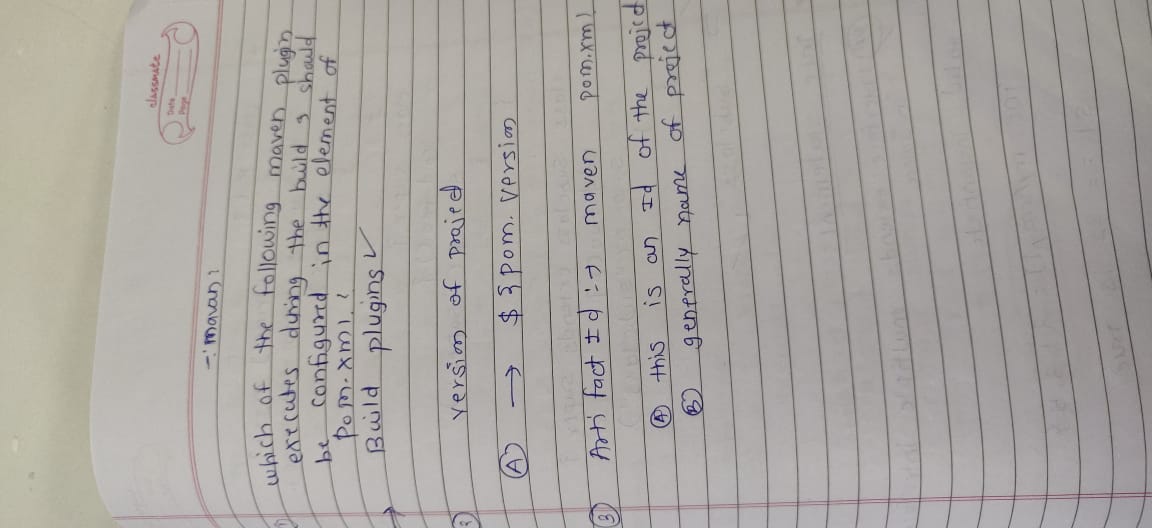 classmate
Date
Page
-: mavan :
1) which of the following maven plugin
executes during the build & should
be configured in the element of
Pom.xml.?
→ Build plugins ✓
2) version of project
(A) → $ { pom. version
3) Arti fact Id :→ maven pom.xml
(A) this is an Id of the project
(B) generally name of project